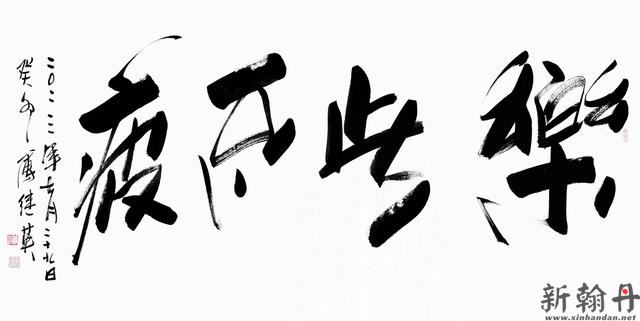 樂此不疲
二〇二三年七月二十九日
癸卯 傅继英
新翰丹
www.xinhandan.net